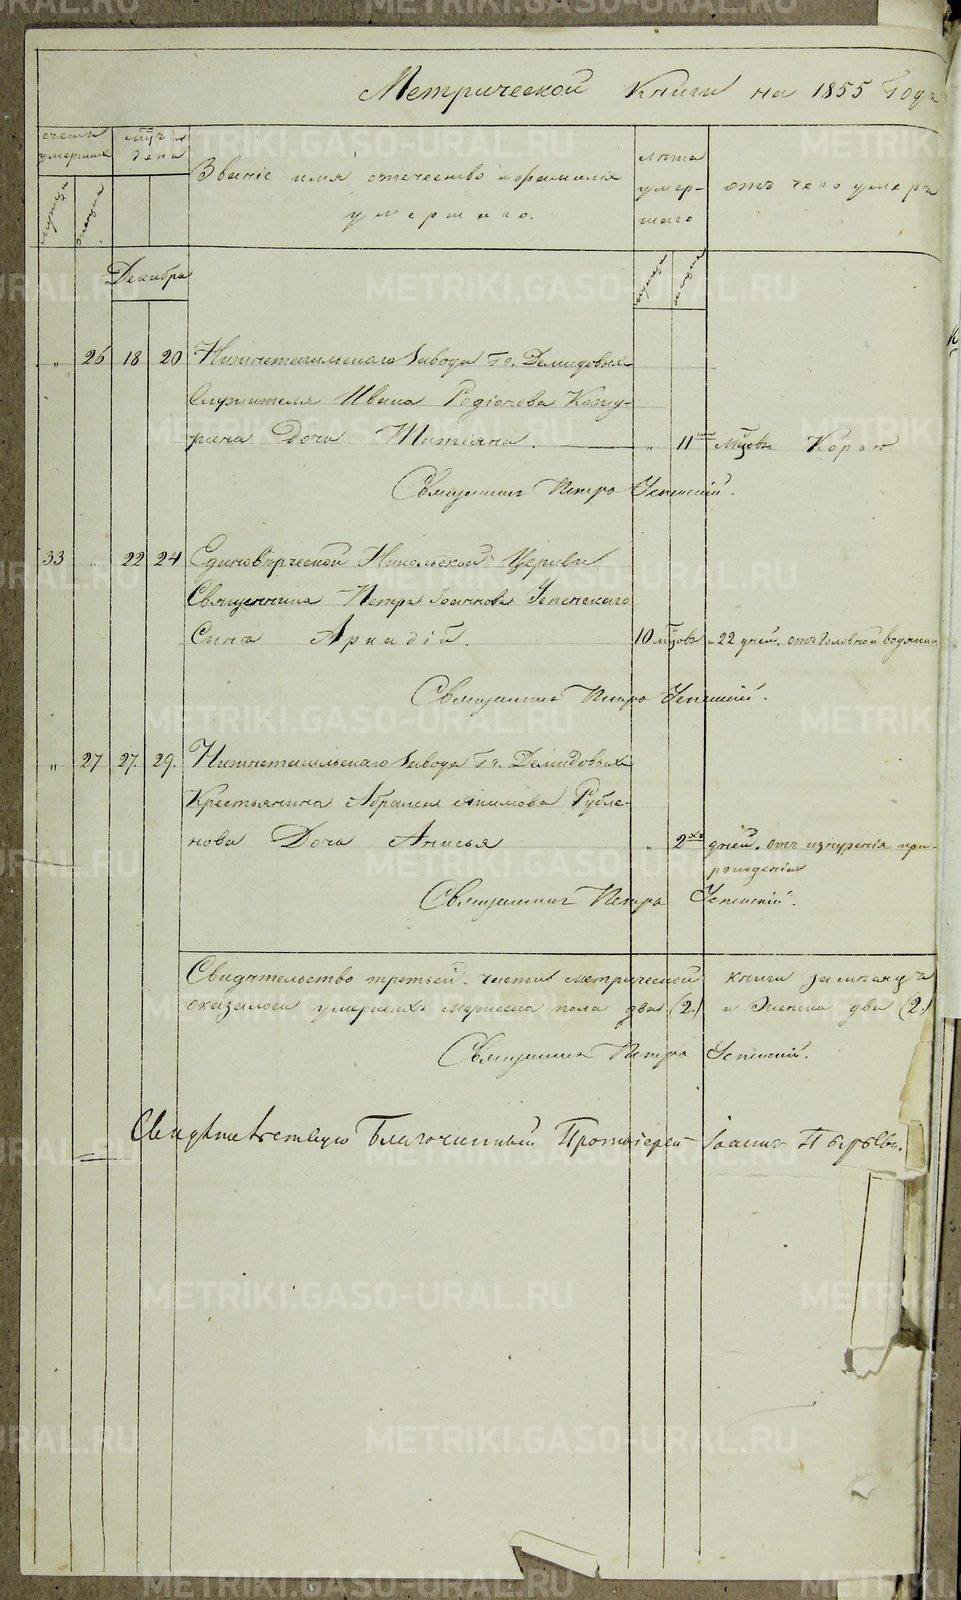 Метрической Книги на 1855 Годъ
счетъ умершихъ
мужеска
женска
мцъ и день
Званіе имя отечество и фамилія
умершаго.
лѣта умер-
шаго
мужеска
женска
отъ чего умеръ
Декабрь
" 26 18 20 Нижнетагильскаго Завода Гг. Демидовыхъ
Служителя Ивана Родіонова
Дочь " 11 мцовъ Корью
Священникъ Петръ Успенскій.
33 " 22 24 Единовѣрческой Никольской Церкви
Священника Петра Іоаннова Успенскаго
Сынъ Аркадій. 10 мцовъ и 22 дней. отъ Головной водянки
Священникъ Петръ Успенскій.
" 27 27. 29. Нижнетагильскаго Завода Гг. Демидовыхъ
Крестьянина Рубле-
нова Дочь Анисья " 2хъ дней. отъ изнуренія при
рожденіи
Священникъ Петръ Успенскій.
Свидѣтельство третьей части метрической книги за мѣсяцъ
оказалось умершихъ мужеска пола два (2.) и Женска два (2.)
Священникъ Петръ Успенскій.
Свидѣтельствую Благочинный Протоіерей Іоаннъ
METRIKI.GASO-URAL.RU